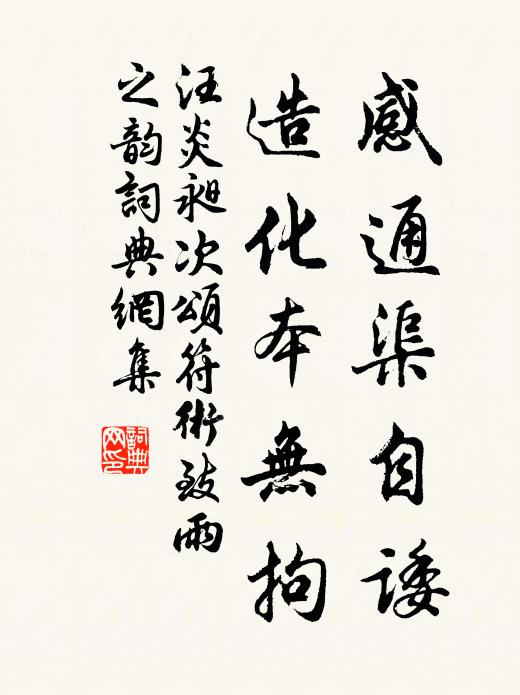 感通渠自諉
造化本無拘
汪炎昶次頌符術致雨
之韵詞典網集
詞典网印